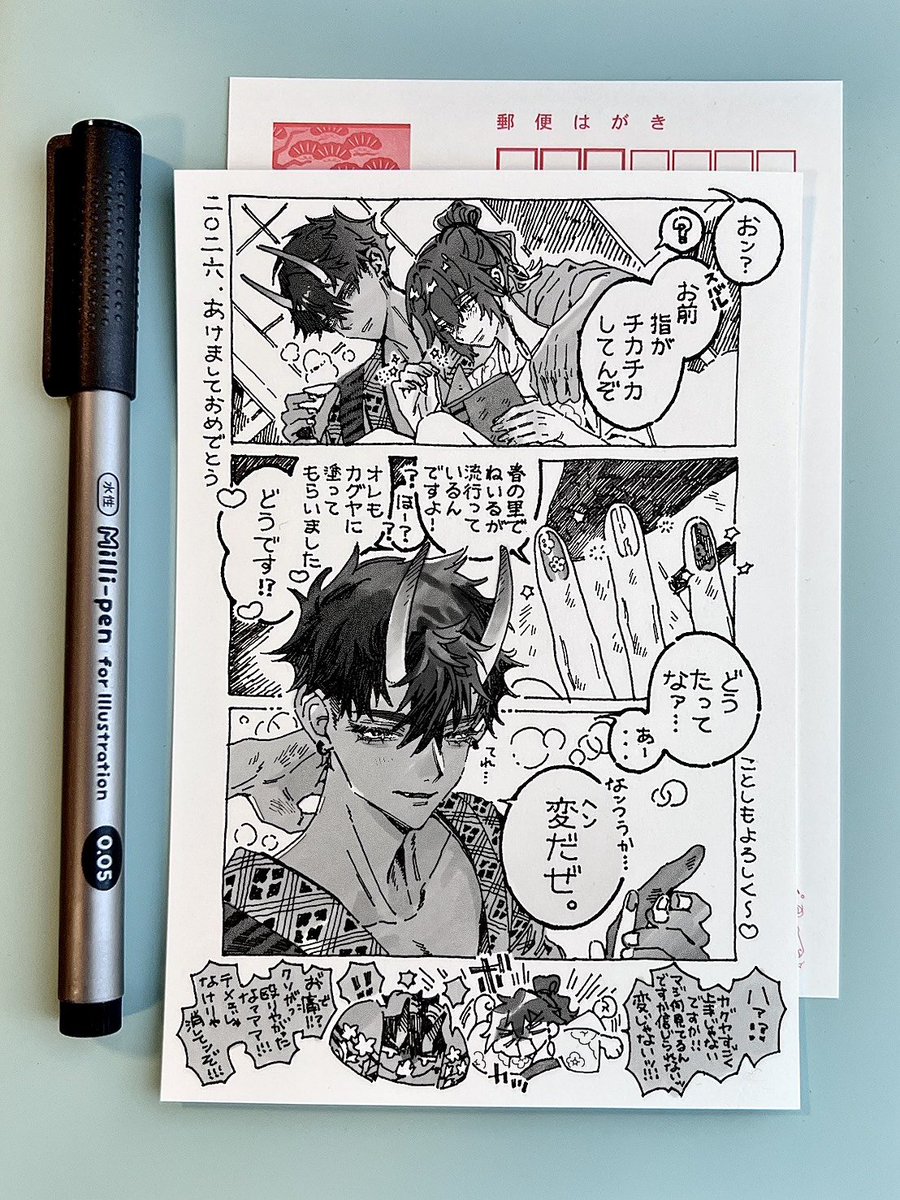 郵便はがき
水性
Milli-pen for Illustration
0.05
二〇二六.あけましておめでとう
おン?
?
お前
スバル
指が
チカチカ
してんぞ
春の里で
ねいるが
流行って
いるん
ですよー
?ほー??
オレも
カグヤに
塗って
もらいました♡
どうです!?
どう
たって
なァ…
あー…
てれ…
なンつうか…
変だぜ。
ヘン
ことしもよろしく〜♡
ハァ??
カグヤすごく
上手じゃない
ですか!!
マジ何見てるん
ですか信じられない
変じゃないッ!!!
ボ
カッ
!!
お痛!?
クソがっ
殴りやがったな
テメェじゃ
なけりゃ
消してンぞ!!!